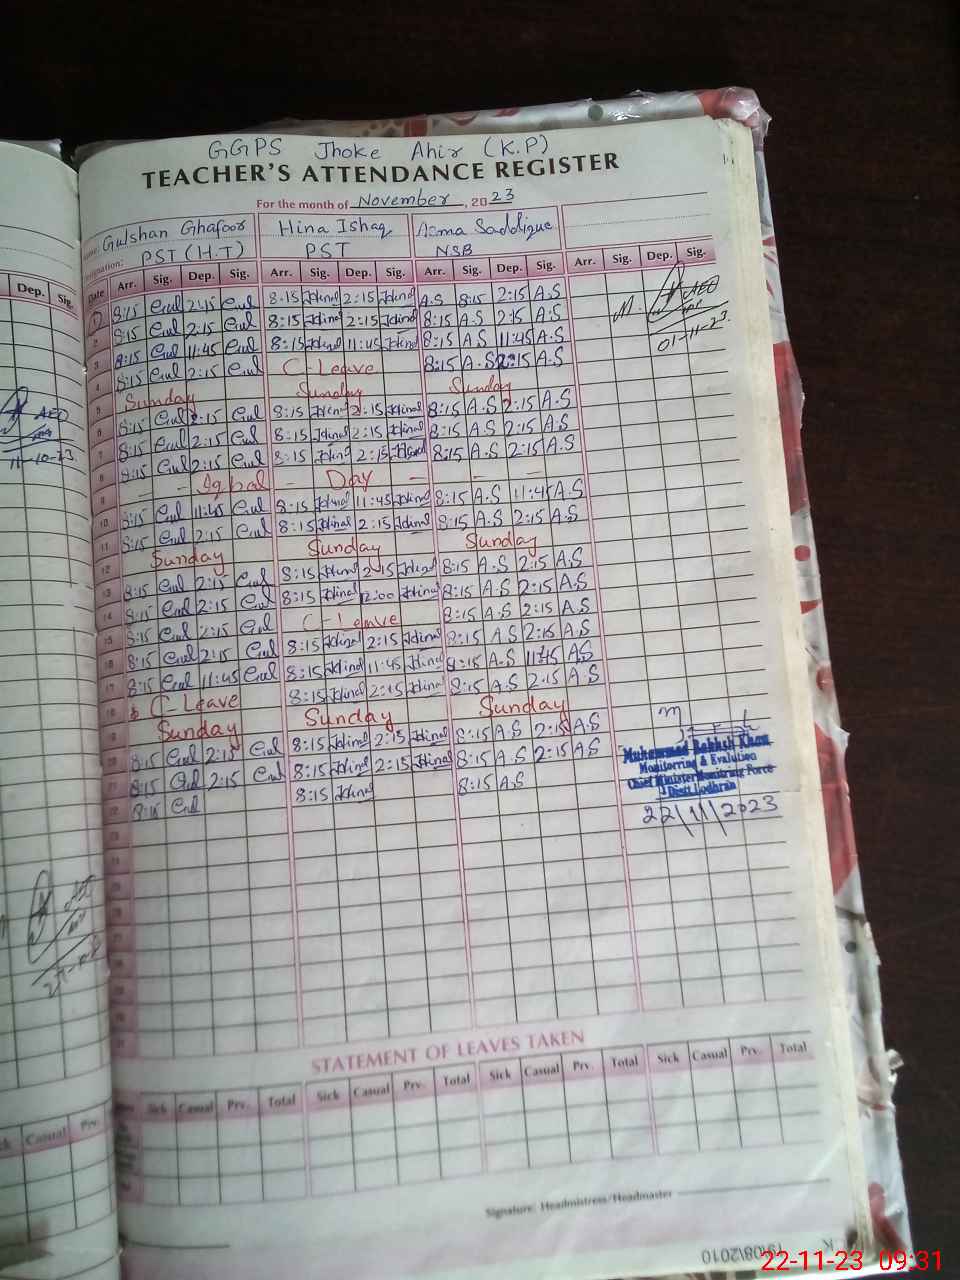 GGPS Jhoke Ahir (K.P)
TEACHER'S ATTENDANCE REGISTER
For the month of November, 2023
Gulshan Ghafoor Hina Ishaq Asma Saddique
Designation: PST (H.T) PST NSB
Date Arr. Sig. Dep. Sig. Arr. Sig. Dep. Sig. Arr. Sig. Dep. Sig. Arr. Sig. Dep. Sig.
1 8:15 Gul 2:15 Gul 8:15 Hina 2:15 Hina A.S 8:15 2:15 A.S
2 8:15 Gul 2:15 Gul 8:15 Hina 2:15 Hina 8:15 A.S 2:15 A.S
3 8:15 Gul 11:45 Gul 8:15 Hina 11:45 Hina 8:15 A.S 11:45 A.S
4 8:15 Gul 2:15 Gul C-Leave 8:15 A.S 2:15 A.S
5 Sunday Sunday Sunday
6 8:15 Gul 2:15 Gul 8:15 Hina 2:15 Hina 8:15 A.S 2:15 A.S
7 8:15 Gul 2:15 Gul 8:15 Hina 2:15 Hina 8:15 A.S 2:15 A.S
8 8:15 Gul 2:15 Gul 8:15 Hina 2:15 Hina 8:15 A.S 2:15 A.S
9 - - Iqbal - Day - - -
10 8:15 Gul 11:45 Gul 8:15 Hina 11:45 Hina 8:15 A.S 11:45 A.S
11 8:15 Gul 2:15 Gul 8:15 Hina 2:15 Hina 8:15 A.S 2:15 A.S
12 Sunday Sunday Sunday
13 8:15 Gul 2:15 Gul 8:15 Hina 2:15 Hina 8:15 A.S 2:15 A.S
14 8:15 Gul 2:15 Gul 8:15 Hina 12:00 Hina 8:15 A.S 2:15 A.S
15 8:15 Gul 2:15 Gul C-Leave 8:15 A.S 2:15 A.S
16 8:15 Gul 2:15 Gul 8:15 Hina 2:15 Hina 8:15 A.S 2:15 A.S
17 8:15 Gul 11:45 Gul 8:15 Hina 11:45 Hina 8:15 A.S 11:45 A.S
18 C-Leave 8:15 Hina 2:15 Hina 8:15 A.S 2:15 A.S
19 Sunday Sunday Sunday
20 8:15 Gul 2:15 Gul 8:15 Hina 2:15 Hina 8:15 A.S 2:15 A.S
21 8:15 Gul 2:15 Gul 8:15 Hina 2:15 Hina 8:15 A.S 2:15 A.S
22 8:15 Gul 8:15 Hina 8:15 A.S
AEO
01-11-23
Muhammad Bakhsh Khan
Monitorring & Evalution
Chief Minister Monitring Force
Distt. Lodhran
22/11/2023
STATEMENT OF LEAVES TAKEN
Sick Casual Prv. Total Sick Casual Prv. Total Sick Casual Prv. Total Sick Casual Prv. Total
Signature: Headmistress/Headmaster
Dep. Sig.
AEO
11-10-23
Casual Prv.
19/08/2010
22-11-23 09:31